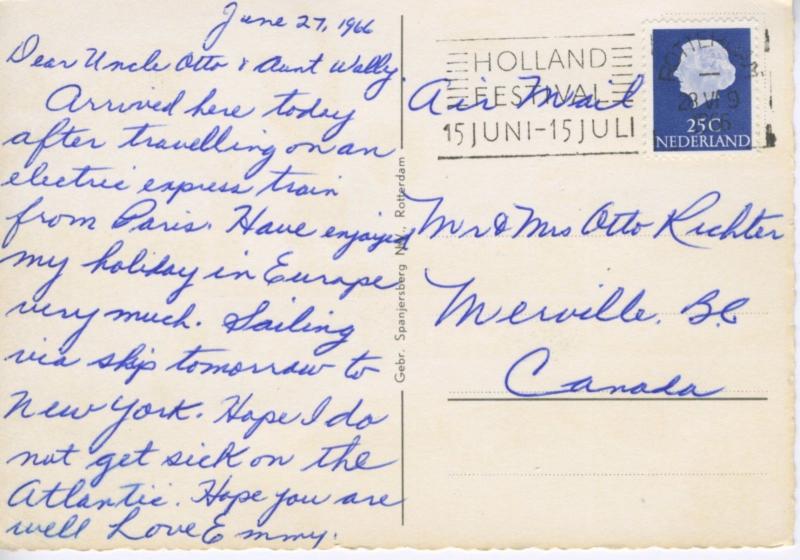 June 27, 1966
Dear Uncle Otto & Aunt Wally
Arrived here today
after travelling on an
electric express train
from Paris. Have enjoyed
my holiday in Europe
very much. Sailing
via ship tomorrow to
New York. Hope I do
not get sick on the
Atlantic. Hope you are
well Love Emmy.
Gebr. Spanjersberg N.V., Rotterdam
HOLLAND
FESTIVAL
15 JUNI-15 JULI
Air Mail
25 C
NEDERLAND
Mr & Mrs Otto Richter
Merville. B.C
Canada